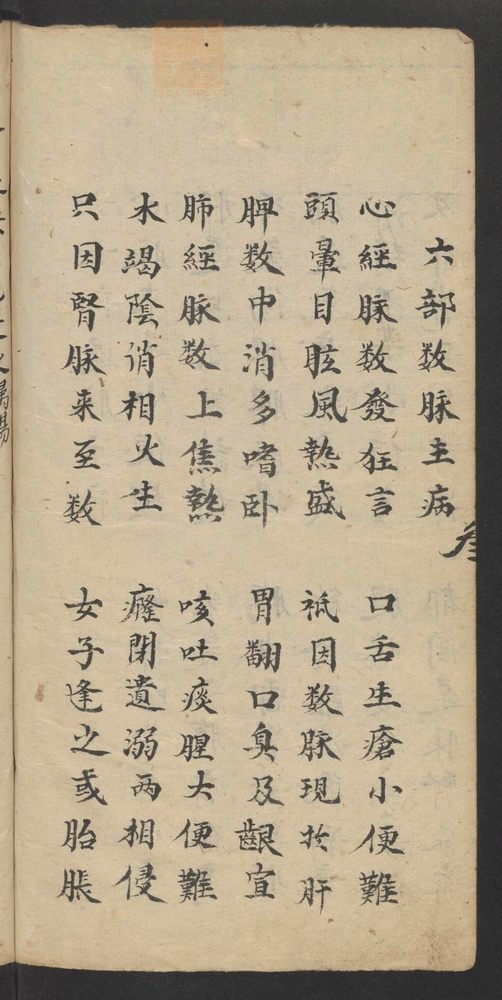 六部数脉主病
心經脉数發狂言 口舌生瘡小便難
頭暈目眩風熱盛 祇因数脉現扵肝
脾数中消多嗜卧 胃翻口臭及齦宣
肺經脉数上焦熱 咳吐痰腥大便難
水竭陰消相火生 癃閉遺溺两相侵
只因腎脉来至数 女子逢之或胎脹